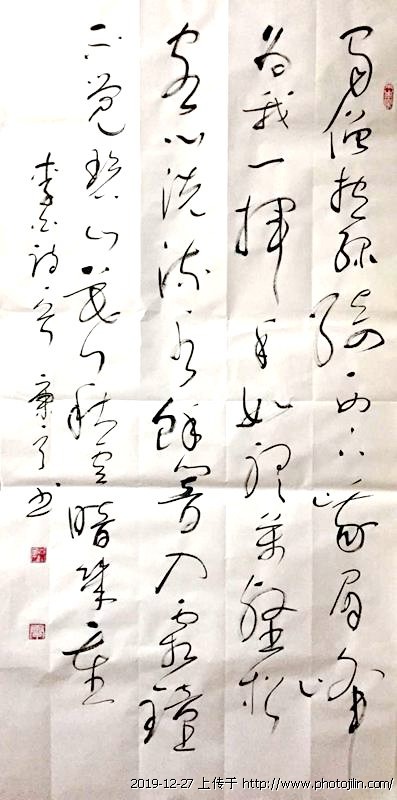 蜀僧抱绿绮西下峨眉峰
为我一挥手如听万壑松
客心洗流水馀响入霜钟
不觉碧山暮秋云暗几重
李白诗一首 书
2019-12-27 上传于 http://www.photojilin.com/